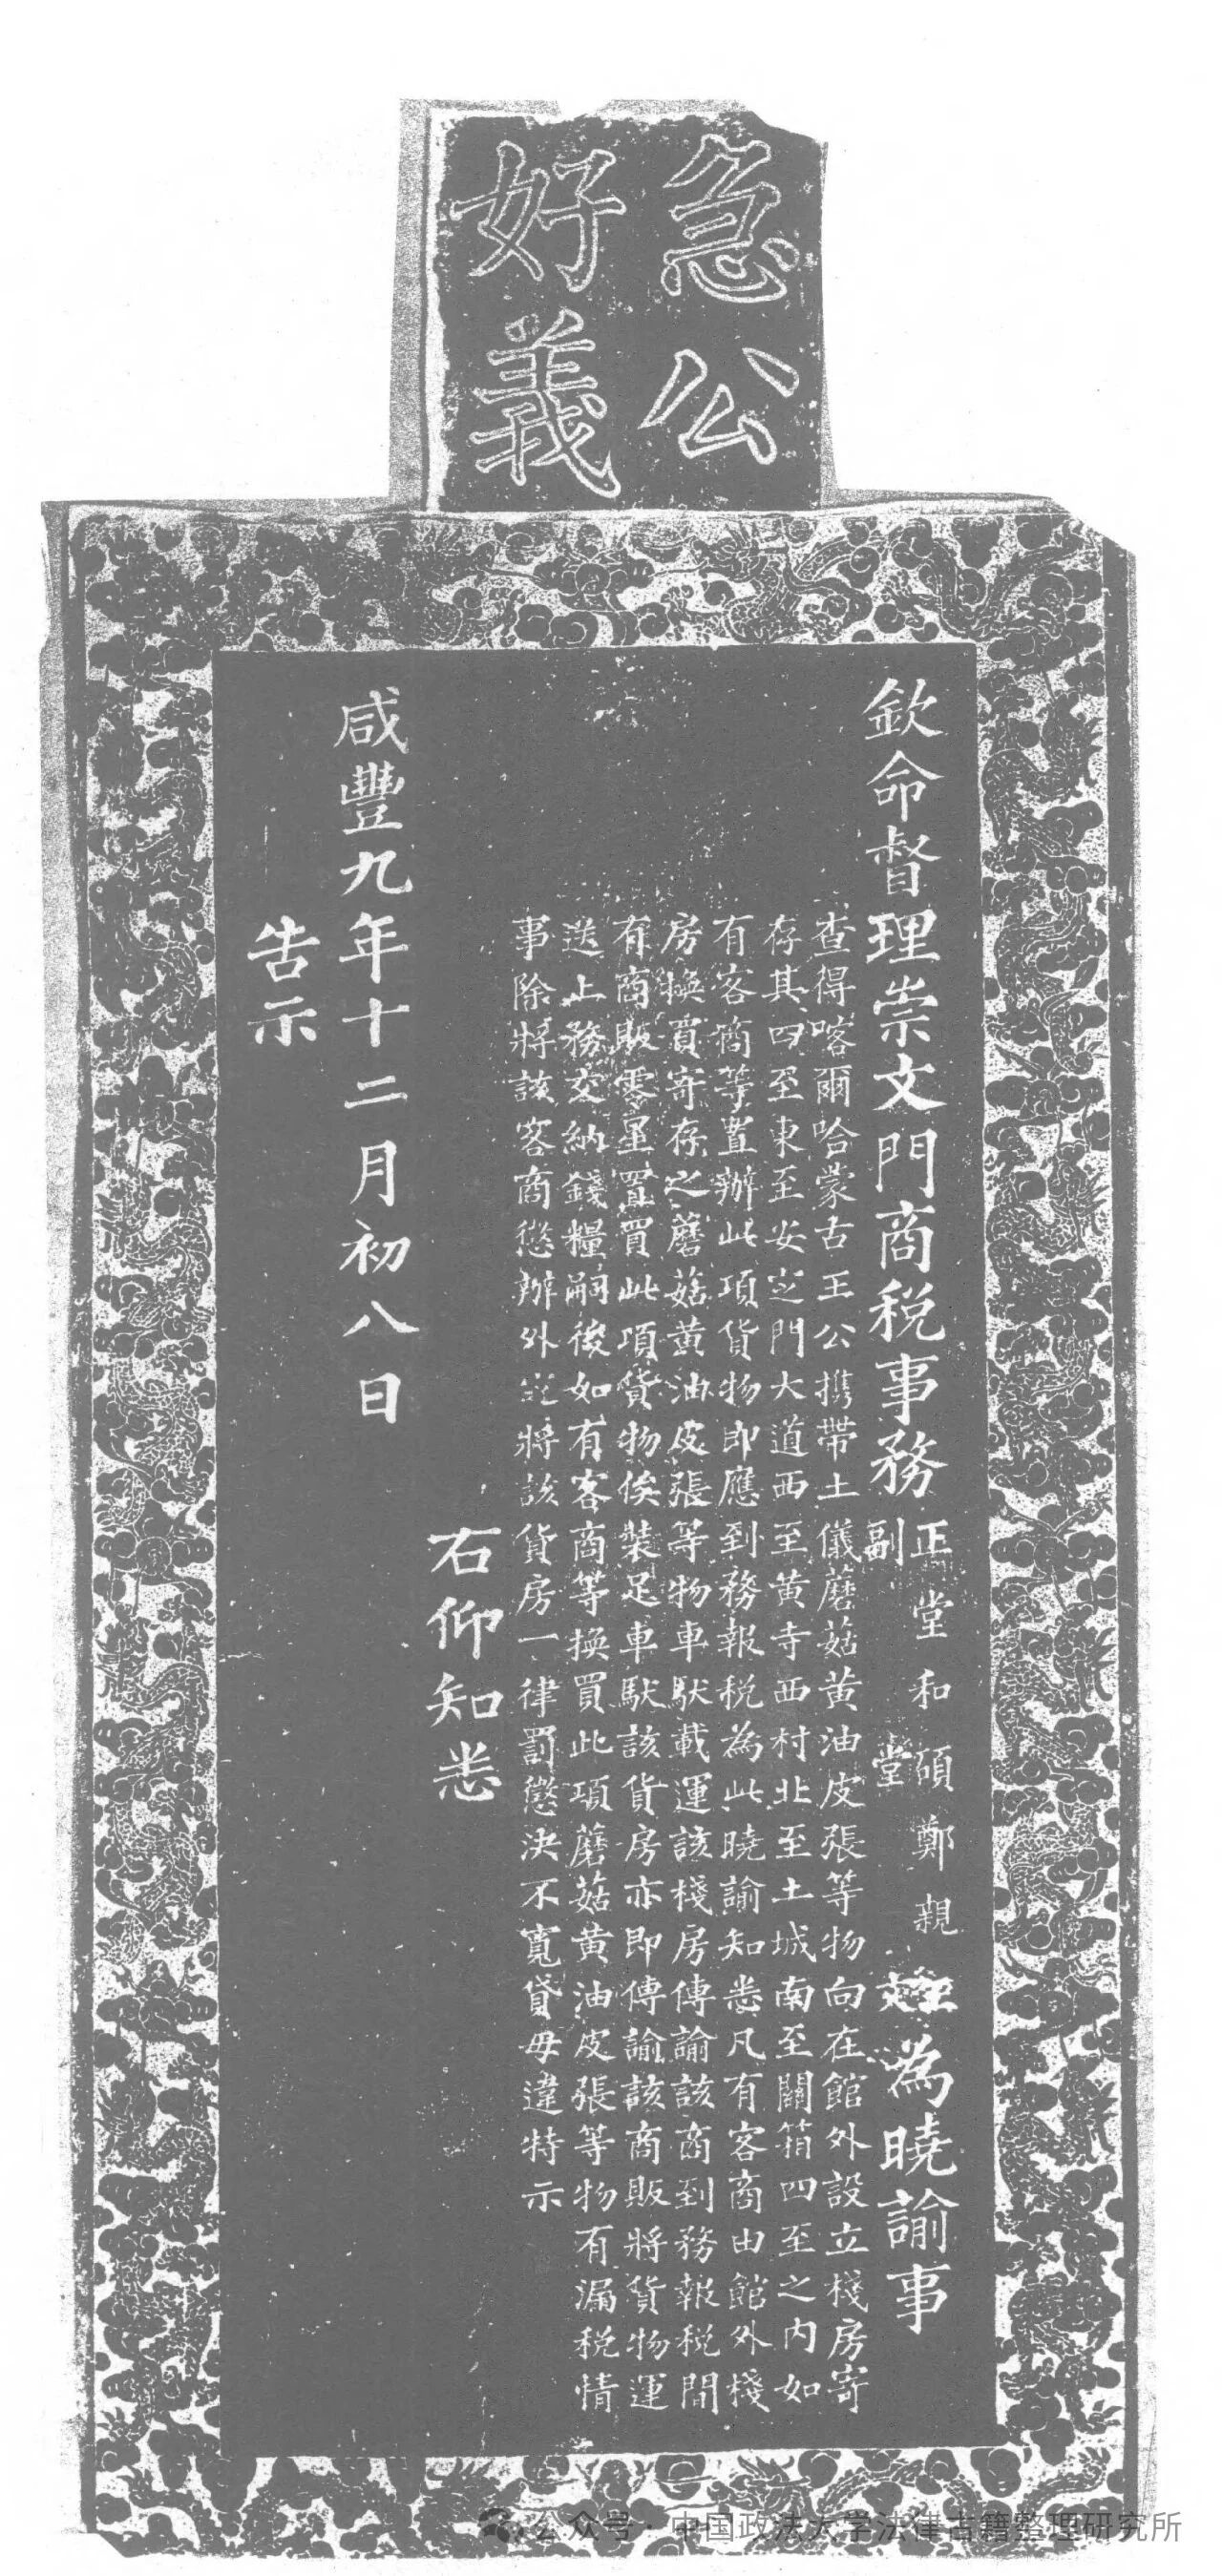 急公
好義
欽命督理崇文門商税事務正堂和碩鄭親王
副堂文為曉諭事
查得喀爾哈蒙古王公攜帶土儀蘑菇黄油皮張等物向在館外設立棧房寄
存其四至東至安定門大道西至黄寺西村北至土城南至關箱四至之内如
有客商等置辦此項貨物即應到務報税為此曉諭知悉凡有客商由館外棧
房換買寄存之蘑菇黄油皮張等物車馱載運該棧房傳諭該商到務報税間
有商販零星置買此項貨物俟裝足車馱該貨房亦即傳諭該商販將貨物運
送上務交納錢糧嗣後如有客商等換買此項蘑菇黄油皮張等物有漏税情
事除將該客商懲辦外並將該貨房一律罰懲決不寬貸毋違特示
右仰知悉
咸豐九年十二月初八日
告示
公众号·中国政法大学法律古籍整理研究所